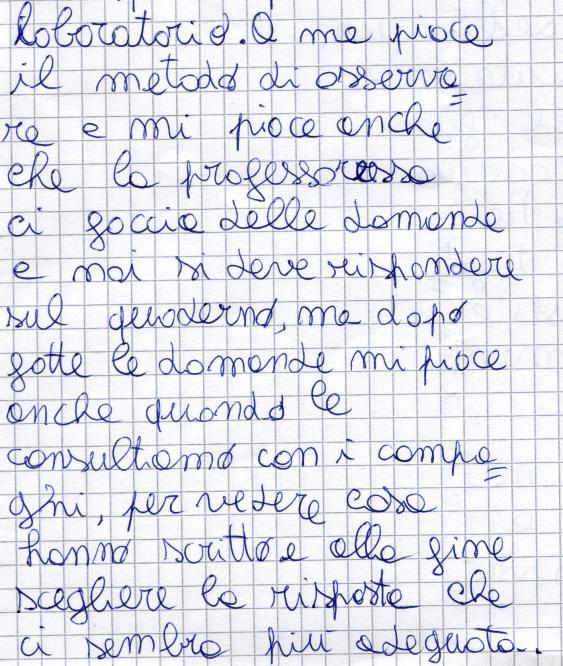 laboratorio. A me piace
il metodo di osserva=
re e mi piace anche
che la professoressa
ci faccia delle domande
e noi si deve rispondere
sul quaderno, ma dopo
fatte le domande mi piace
anche quando le
consultiamo con i compa=
gni, per vedere cosa
hanno scritto e alla fine
scegliere la risposta che
ci sembra più adeguata..